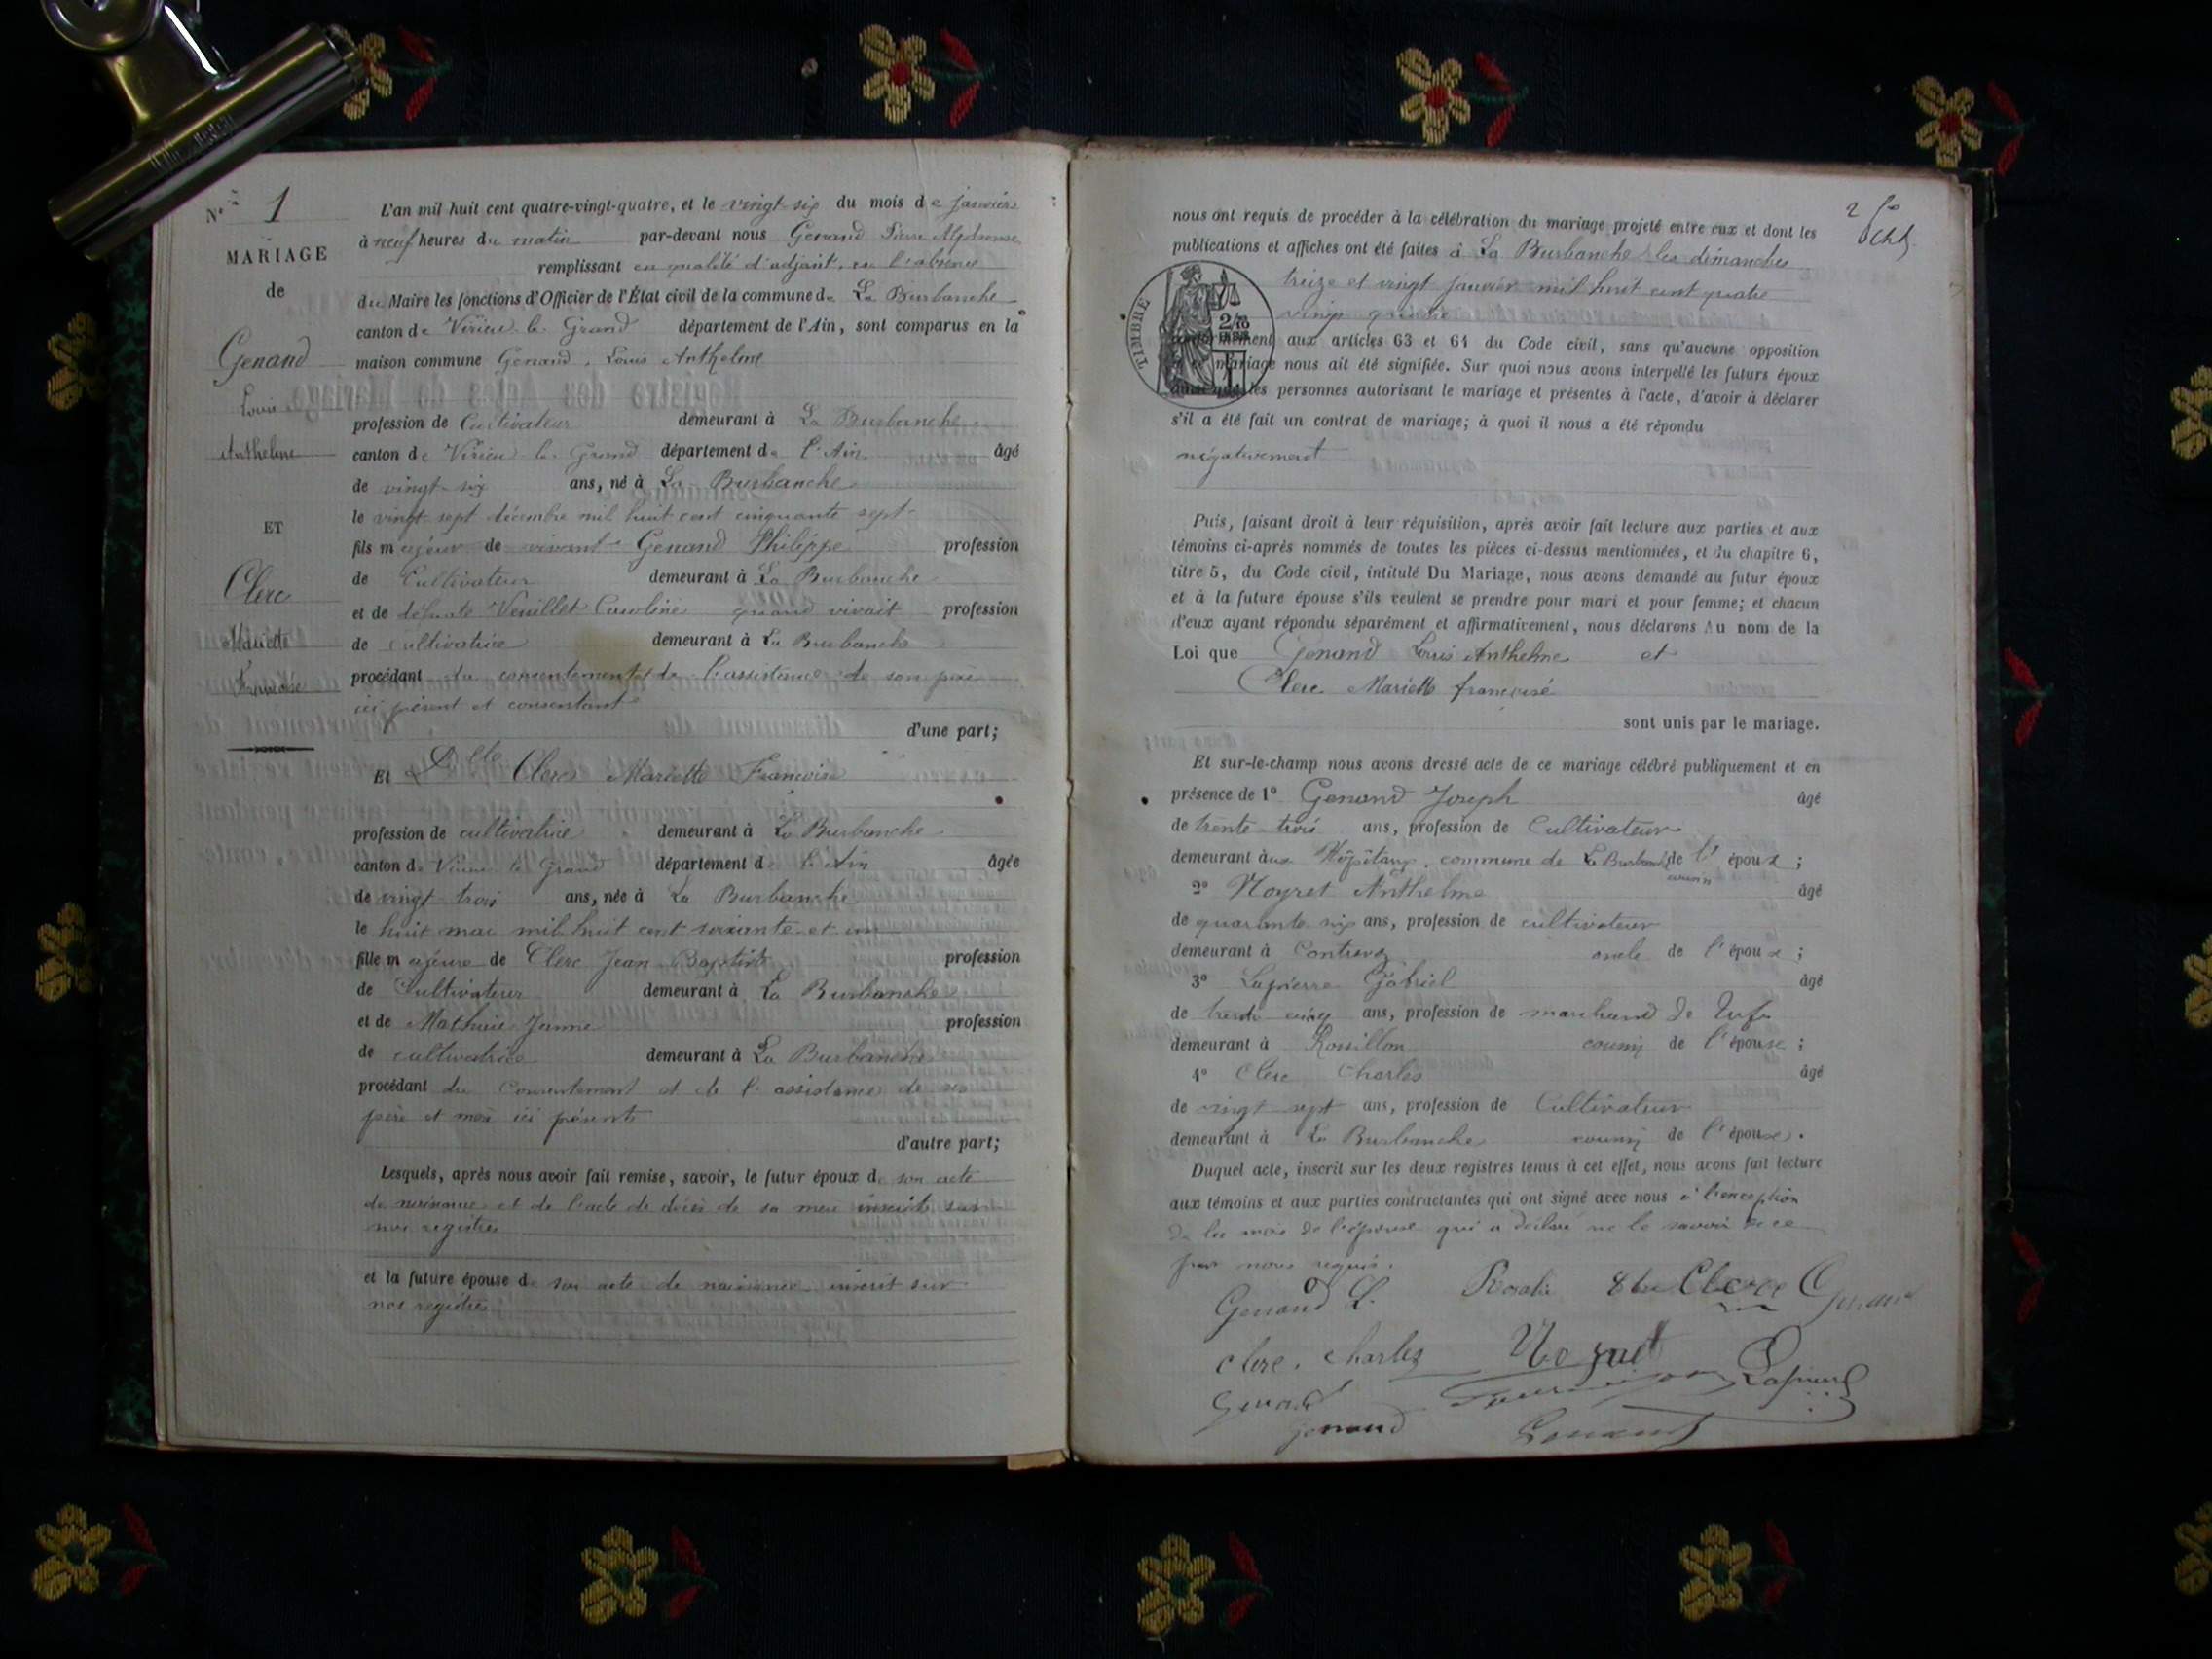 N° 1
MARIAGE
de
Genand
Louis
Anthelme
ET
Clerc
Mariette
Françoise
L'an mil huit cent quatre-vingt-quatre, et le vingt six du mois de janvier
à neuf heures du matin par-devant nous Genand Pierre Alphonse
remplissant en qualité d'adjoint, en l'absence
du Maire les fonctions d'Officier de l'État civil de la commune de La Burbanche
canton de Virieu le Grand département de l'Ain, sont comparus en la
maison commune Genand, Louis Anthelme
profession de Cultivateur demeurant à La Burbanche
canton de Virieu le Grand département de l'Ain âgé
de vingt-six ans, né à La Burbanche
le vingt sept décembre mil huit cent cinquante sept
fils majeur de vivant Genand Philippe profession
de Cultivateur demeurant à La Burbanche
et de défunte Veuillet Caroline quand vivait profession
de cultivatrice demeurant à La Burbanche
procédant du consentement et de l'assistance de son père
ici présent et consentant
d'une part;
Et Dlle Clerc Mariette Françoise
profession de cultivatrice demeurant à La Burbanche
canton de Virieu le Grand département de l'Ain âgée
de vingt trois ans, née à La Burbanche
le huit mai mil huit cent soixante et un
fille majeure de Clerc Jean Baptiste profession
de Cultivateur demeurant à La Burbanche
et de Jeanne profession
de cultivatrice demeurant à La Burbanche
procédant du Consentement et de l'assistance de ses
père et mère ici présents
d'autre part;
Lesquels, après nous avoir fait remise, savoir, le futur époux de son acte
de naissance et de l'acte de décès de sa mère inscrits sur
nos registres
et la future épouse de son acte de naissance inscrit sur
nos registres
2
nous ont requis de procéder à la célébration du mariage projeté entre eux et dont les
publications et affiches ont été faites à La Burbanche les dimanches
treize et vingt janvier mil huit cent quatre
vingt quatre
TIMBRE
conformément aux articles 63 et 64 du Code civil, sans qu'aucune opposition
à ce mariage nous ait été signifiée. Sur quoi nous avons interpellé les futurs époux
ainsi que les personnes autorisant le mariage et présentes à l'acte, d'avoir à déclarer
s'il a été fait un contrat de mariage; à quoi il nous a été répondu
négativement
Puis, faisant droit à leur réquisition, après avoir fait lecture aux parties et aux
témoins ci-après nommés de toutes les pièces ci-dessus mentionnées, et du chapitre 6,
titre 5, du Code civil, intitulé Du Mariage, nous avons demandé au futur époux
et à la future épouse s'ils veulent se prendre pour mari et pour femme; et chacun
d'eux ayant répondu séparément et affirmativement, nous déclarons Au nom de la
Loi que Genand Louis Anthelme et
Clerc Mariette françoise
sont unis par le mariage.
Et sur-le-champ nous avons dressé acte de ce mariage célébré publiquement et en
présence de 1° Genand Joseph âgé
de trente trois ans, profession de Cultivateur
demeurant aux Hôpitaux, commune de La Burbanche cousin de l'époux;
2° Noyret Anthelme âgé
de quarante six ans, profession de cultivateur
demeurant à Contrevoz oncle de l'époux;
3° Lapierre Gabriel âgé
de trente cinq ans, profession de marchand de
demeurant à Rossillon cousin de l'épouse;
4° Clerc Charles âgé
de vingt sept ans, profession de Cultivateur
demeurant à La Burbanche cousin de l'épouse.
Duquel acte, inscrit sur les deux registres tenus à cet effet, nous avons fait lecture
aux témoins et aux parties contractantes qui ont signé avec nous à l'exception
de la mère de l'épouse qui a déclaré ne le savoir de ce
par nous requis.
Genand L. Rosalie Clerc Genand
Clerc, Charles Noyret
Genand Lapierre
Genand